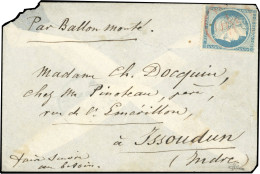 Par Ballon monté.
Madame Ch. Docquin,
chez M. Pinoteau, père,
rue de l'Emérillon,
à Issoudun
(Indre)
faire suivre
au besoin.